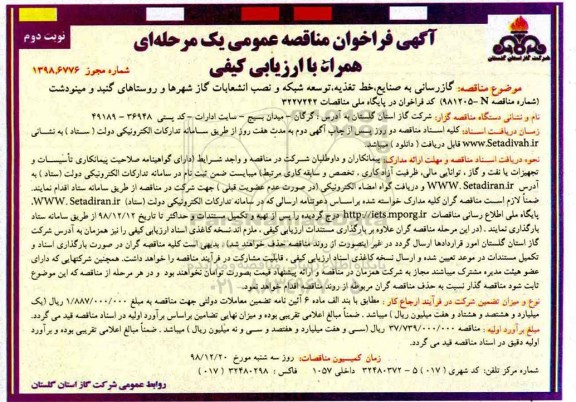 نوبت دوم
آگهی فراخوان مناقصه عمومی یک مرحله‌ای
همراه با ارزیابی کیفی
شماره مجوز ۱۳۹۸,۶۷۷۶
شرکت گاز استان گلستان
موضوع مناقصه: گازرسانی به صنایع،خط تغذیه،توسعه شبکه و نصب انشعابات گاز شهرها و روستاهای گنبد و مینودشت
(شماره مناقصه N –۹۸۱۲۰۵) کد فراخوان در پایگاه ملی مناقصات ۳۲۲۷۲۴۲
نام و نشانی دستگاه مناقصه گزار: شرکت گاز استان گلستان به آدرس : گرگان – میدان بسیج – سایت ادارات – کد پستی ۳۶۹۴۸ – ۴۹۱۸۹
زمان دریافت اسناد: کلیه اسناد مناقصه دو روز پس از چاپ آگهی دوم به مدت هفت روز از طریق سامانه تدارکات الکترونیکی دولت ( ستاد ) به نشانی
www.Setadivah.ir قابل دریافت ( دانلود ) میباشد.
نحوه دریافت اسناد مناقصه و مهلت ارائه مدارک: پیمانکاران و داوطلبان شرکت در مناقصه و واجد شرایط (دارای گواهینامه صلاحیت پیمانکاری تأسیسات و
تجهیزات یا نفت و گاز ، توانایی مالی، ظرفیت آزاد کاری ، تخصص و سابقه کاری مرتبط) میبایست ضمن ثبت نام در سامانه تدارکات الکترونیکی دولت (ستاد ) به
آدرس WWW. Setadiran.ir و دریافت گواه امضاء الکترونیکی (در صورت عدم عضویت قبلی ) جهت شرکت در مناقصه از طریق سامانه ستاد اقدام نمایند.
ضمناً لازم است مناقصه گران کلیه مدارک خواسته شده براساس دعوتنامه ارسالی که در سامانه تدارکات الکترونیکی دولت (ستاد) WWW. Setadiran.ir،
پایگاه ملی اطلاع رسانی مناقصات http://iets.mporg.ir درج گردیده را پس از تهیه و تکمیل مستندات و حداکثر تا تاریخ ۹۸/۱۲/۱۲ از طریق سامانه ستاد
بارگذاری نمایند . (در این مرحله مناقصه گران علاوه بر بارگذاری مستندات ارزیابی کیفی ، ملزم اند نسخه کاغذی اسناد ارزیابی کیفی را نیز همزمان به آدرس شرکت
گاز استان گلستان امور قراردادها ارسال گردد در غیر اینصورت از روند مناقصه حذف خواهند شد) . بدیهی است کلیه مناقصه گران در صورت بارگذاری اسناد و
تکمیل مستندات در موعد تعیین شده و ارسال نسخه کاغذی اسناد ارزیابی کیفی ، قابلیت مشارکت در فرآیند مناقصه را خواهند داشت. همچنین شرکتهایی که دارای
عضو هیئت مدیره مشترک میباشند مجاز به شرکت همزمان در مناقصه و ارائه پیشنهاد قیمت بصورت توأمان نخواهند بود و در هر مرحله از مناقصه که این موضوع
ثابت شود مناقصه گذار نسبت به حذف مناقصه گران مربوطه از روند مناقصه اقدام خواهد نمود.
نوع و میزان تضمین شرکت در فرآیند ارجاع کار : مطابق با بند الف ماده ۶ آئین نامه تضمین معاملات دولتی جهت مناقصه به مبلغ ۱/۸۸۷/۰۰۰/۰۰۰ ریال (یک
میلیارد و هشتصد و هشتاد و هفت میلیون ریال) میباشد . ضمناً مبالغ اعلامی تقریبی بوده و میزان نهایی تضامین براساس برآورد اولیه در اسناد مناقصه قید می گردد.
مبلغ برآورد اولیه : مناقصه ۳۷/۷۳۹/۰۰۰/۰۰۰ ریال (سی و هفت میلیارد و هفتصد و سی و نه میلیون ریال ) میباشد . ضمناً مبالغ اعلامی تقریبی بوده و برآورد
اولیه دقیق در اسناد مناقصه قید می گردد.
زمان کمیسیون مناقصات: روز سه شنبه مورخ ۹۸/۱۲/۲۰
شماره مرکز تلفن: کد شهری (۰۱۷ ) ۵ – ۳۲۴۸۰۳۷۲ داخلی ۱۰۵۷ فاکس : ۳۲۴۸۰۲۹۸ (۰۱۷ )
روابط عمومی شرکت گاز استان گلستان